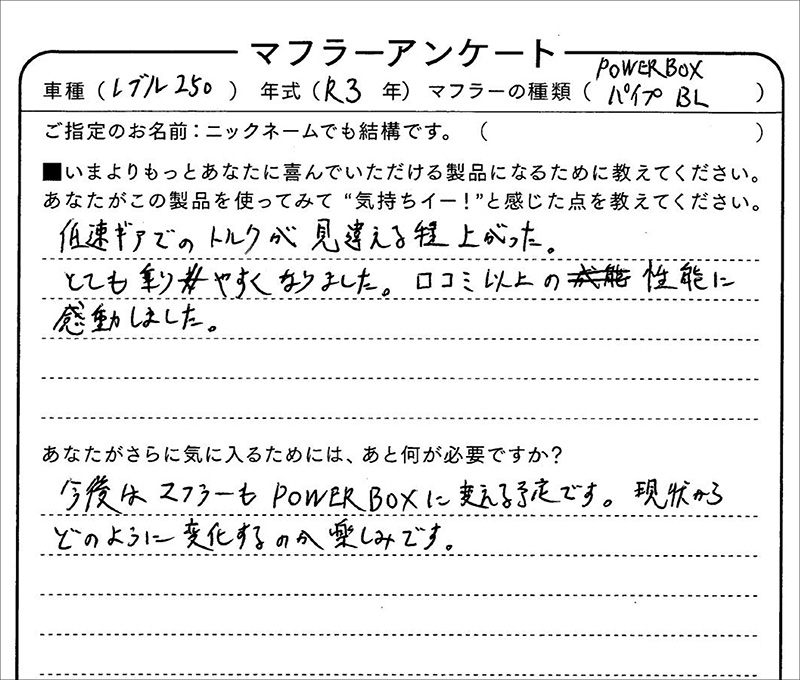 マフラーアンケート
車種（レブル250） 年式（R3 年） マフラーの種類（POWERBOX パイプ BL）
ご指定のお名前：ニックネームでも結構です。（ ）
■いまよりもっとあなたに喜んでいただける製品になるために教えてください。
あなたがこの製品を使ってみて“気持ちイー！”と感じた点を教えてください。
低速ギアでのトルクが見違える程上がった。
とても乗りやすくなりました。口コミ以上の性能に
感動しました。
あなたがさらに気に入るためには、あと何が必要ですか？
今後はマフラーもPOWERBOXに変える予定です。現状から
どのように変化するのか楽しみです。